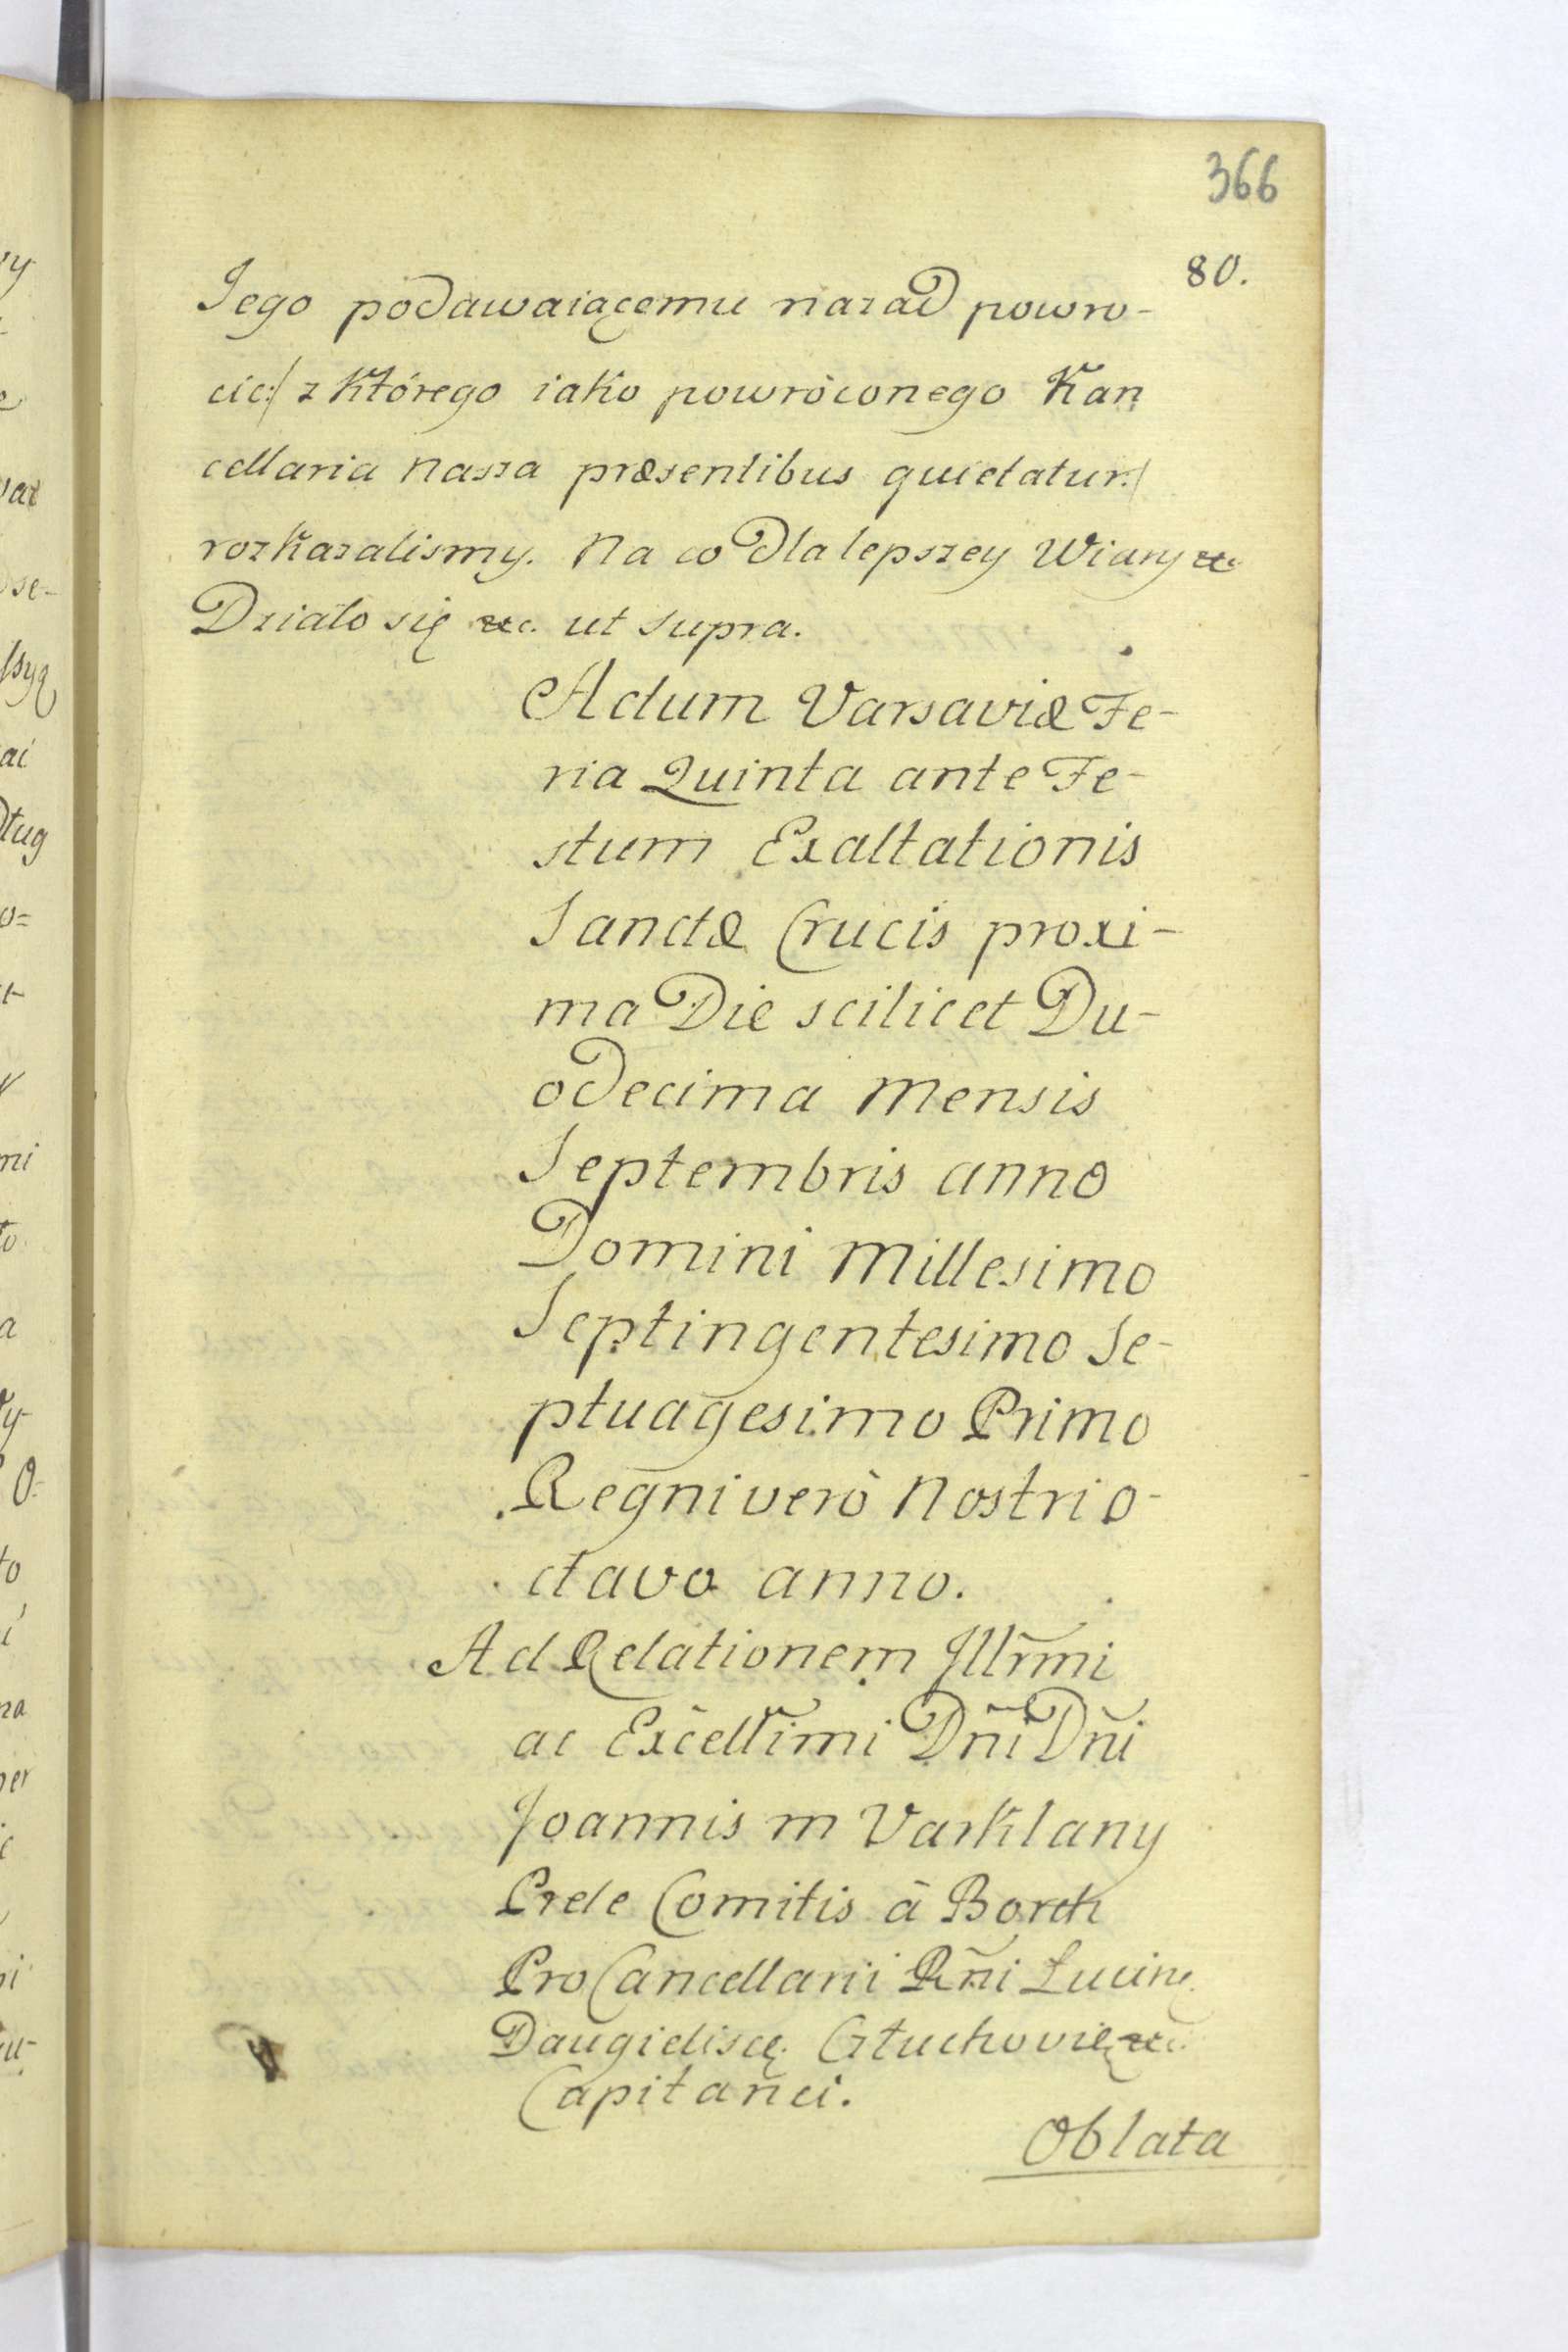 366
80.
Iego podawaiącemu nazad powro-
cic:/ z którego iako powróconego Kan
cellaria nasza præsentibus quietatur:/
rozkazalismy. Na co Dla lepszey Wiary &c.
Działo się &c. ut supra.
Actum Varsaviæ Fe-
ria Quinta ante Fe-
stum Exaltationis
Sanctæ Crucis proxi-
ma Die scilicet Du-
odecima Mensis
Septembris anno
Domini Millesimo
Septingentesimo Se-
ptuagesimo Primo
Regni verò Nostri o-
ctavo anno.
Ad Relationem Jllr̃mi
ac Excell̃imi Dñi Dñi
Joannis in Varklany
Prele Comitis à Borch
Pro Cancellarii Rñi Lucinę
Daugieliscę. Głuchovię &c.
Capitanei.
Oblata